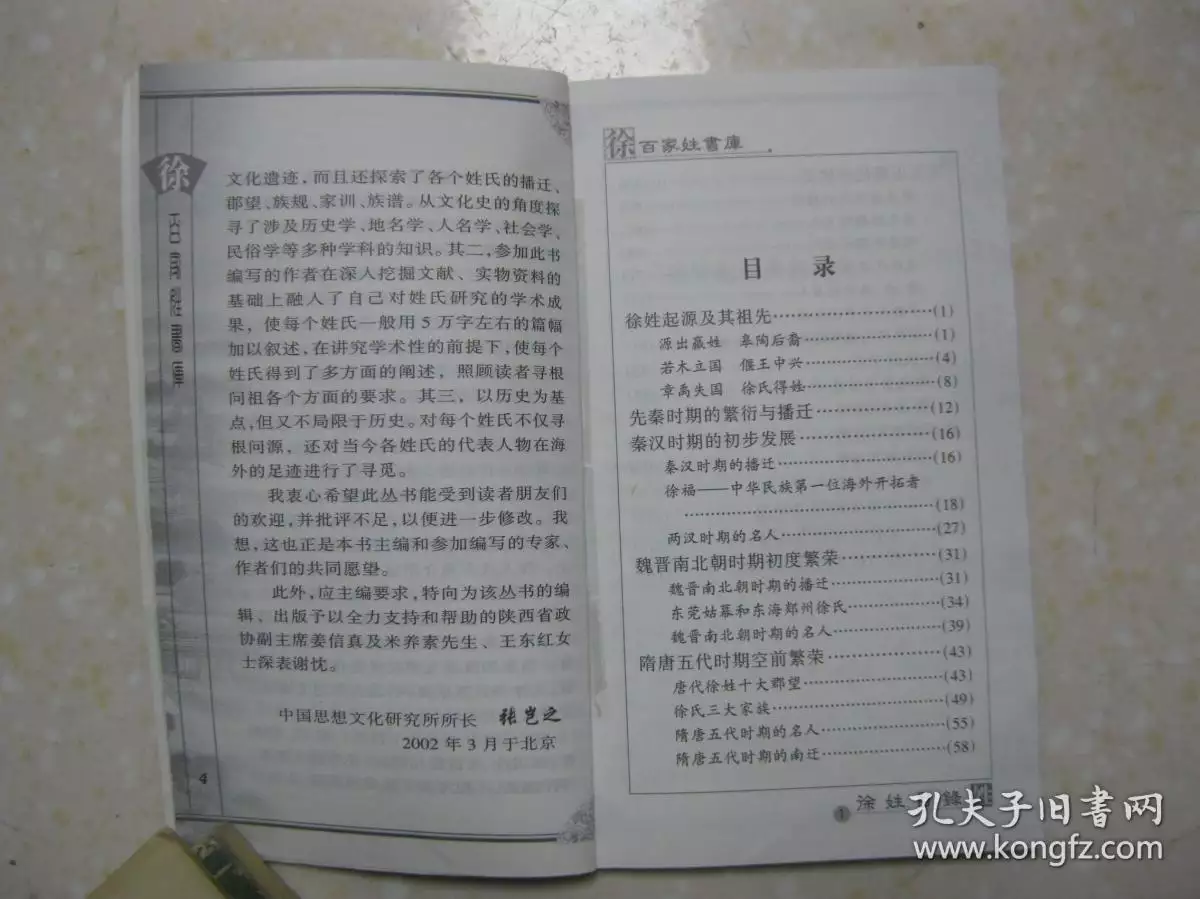 徐
百家姓書庫
文化遗迹，而且还探索了各个姓氏的播迁、
郡望、族规、家训、族谱。从文化史的角度探
寻了涉及历史学、地名学、人名学、社会学、
民俗学等多种学科的知识。其二，参加此书
编写的作者在深入挖掘文献、实物资料的
基础上融入了自己对姓氏研究的学术成
果，使每个姓氏一般用5万字左右的篇幅
加以叙述，在讲究学术性的前提下，使每个
姓氏得到了多方面的阐述，照顾读者寻根
问祖各个方面的要求。其三，以历史为基
点，但又不局限于历史。对每个姓氏不仅寻
根问源，还对当今各姓氏的代表人物在海
外的足迹进行了寻觅。
我衷心希望此丛书能受到读者朋友们
的欢迎，并批评不足，以便进一步修改。我
想，这也正是本书主编和参加编写的专家、
作者们的共同愿望。
此外，应主编要求，特向为该丛书的编
辑、出版予以全力支持和帮助的陕西省政
协副主席姜信真及米养素先生、王东红女
士深表谢忱。
中国思想文化研究所所长 张岂之
2002年3月于北京
4
徐百家姓書庫
目 录
徐姓起源及其祖先……………………(1)
源出嬴姓 皋陶后裔……………………(1)
若木立国 偃王中兴……………………(4)
章禹失国 徐氏得姓……………………(8)
先秦时期的繁衍与播迁………………(12)
秦汉时期的初步发展…………………(16)
秦汉时期的播迁………………………(16)
徐福——中华民族第一位海外开拓者
……………………………………(18)
两汉时期的名人………………………(27)
魏晋南北朝时期初度繁荣……………(31)
魏晋南北朝时期的播迁………………(31)
东莞姑幕和东海郯州徐氏……………(34)
魏晋南北朝时期的名人………………(39)
隋唐五代时期空前繁荣………………(43)
唐代徐姓十大郡望……………………(43)
徐氏三大家族…………………………(49)
隋唐五代时期的名人…………………(55)
隋唐五代时期的南迁…………………(58)
1
孔夫子旧书网
www.kongfz.com